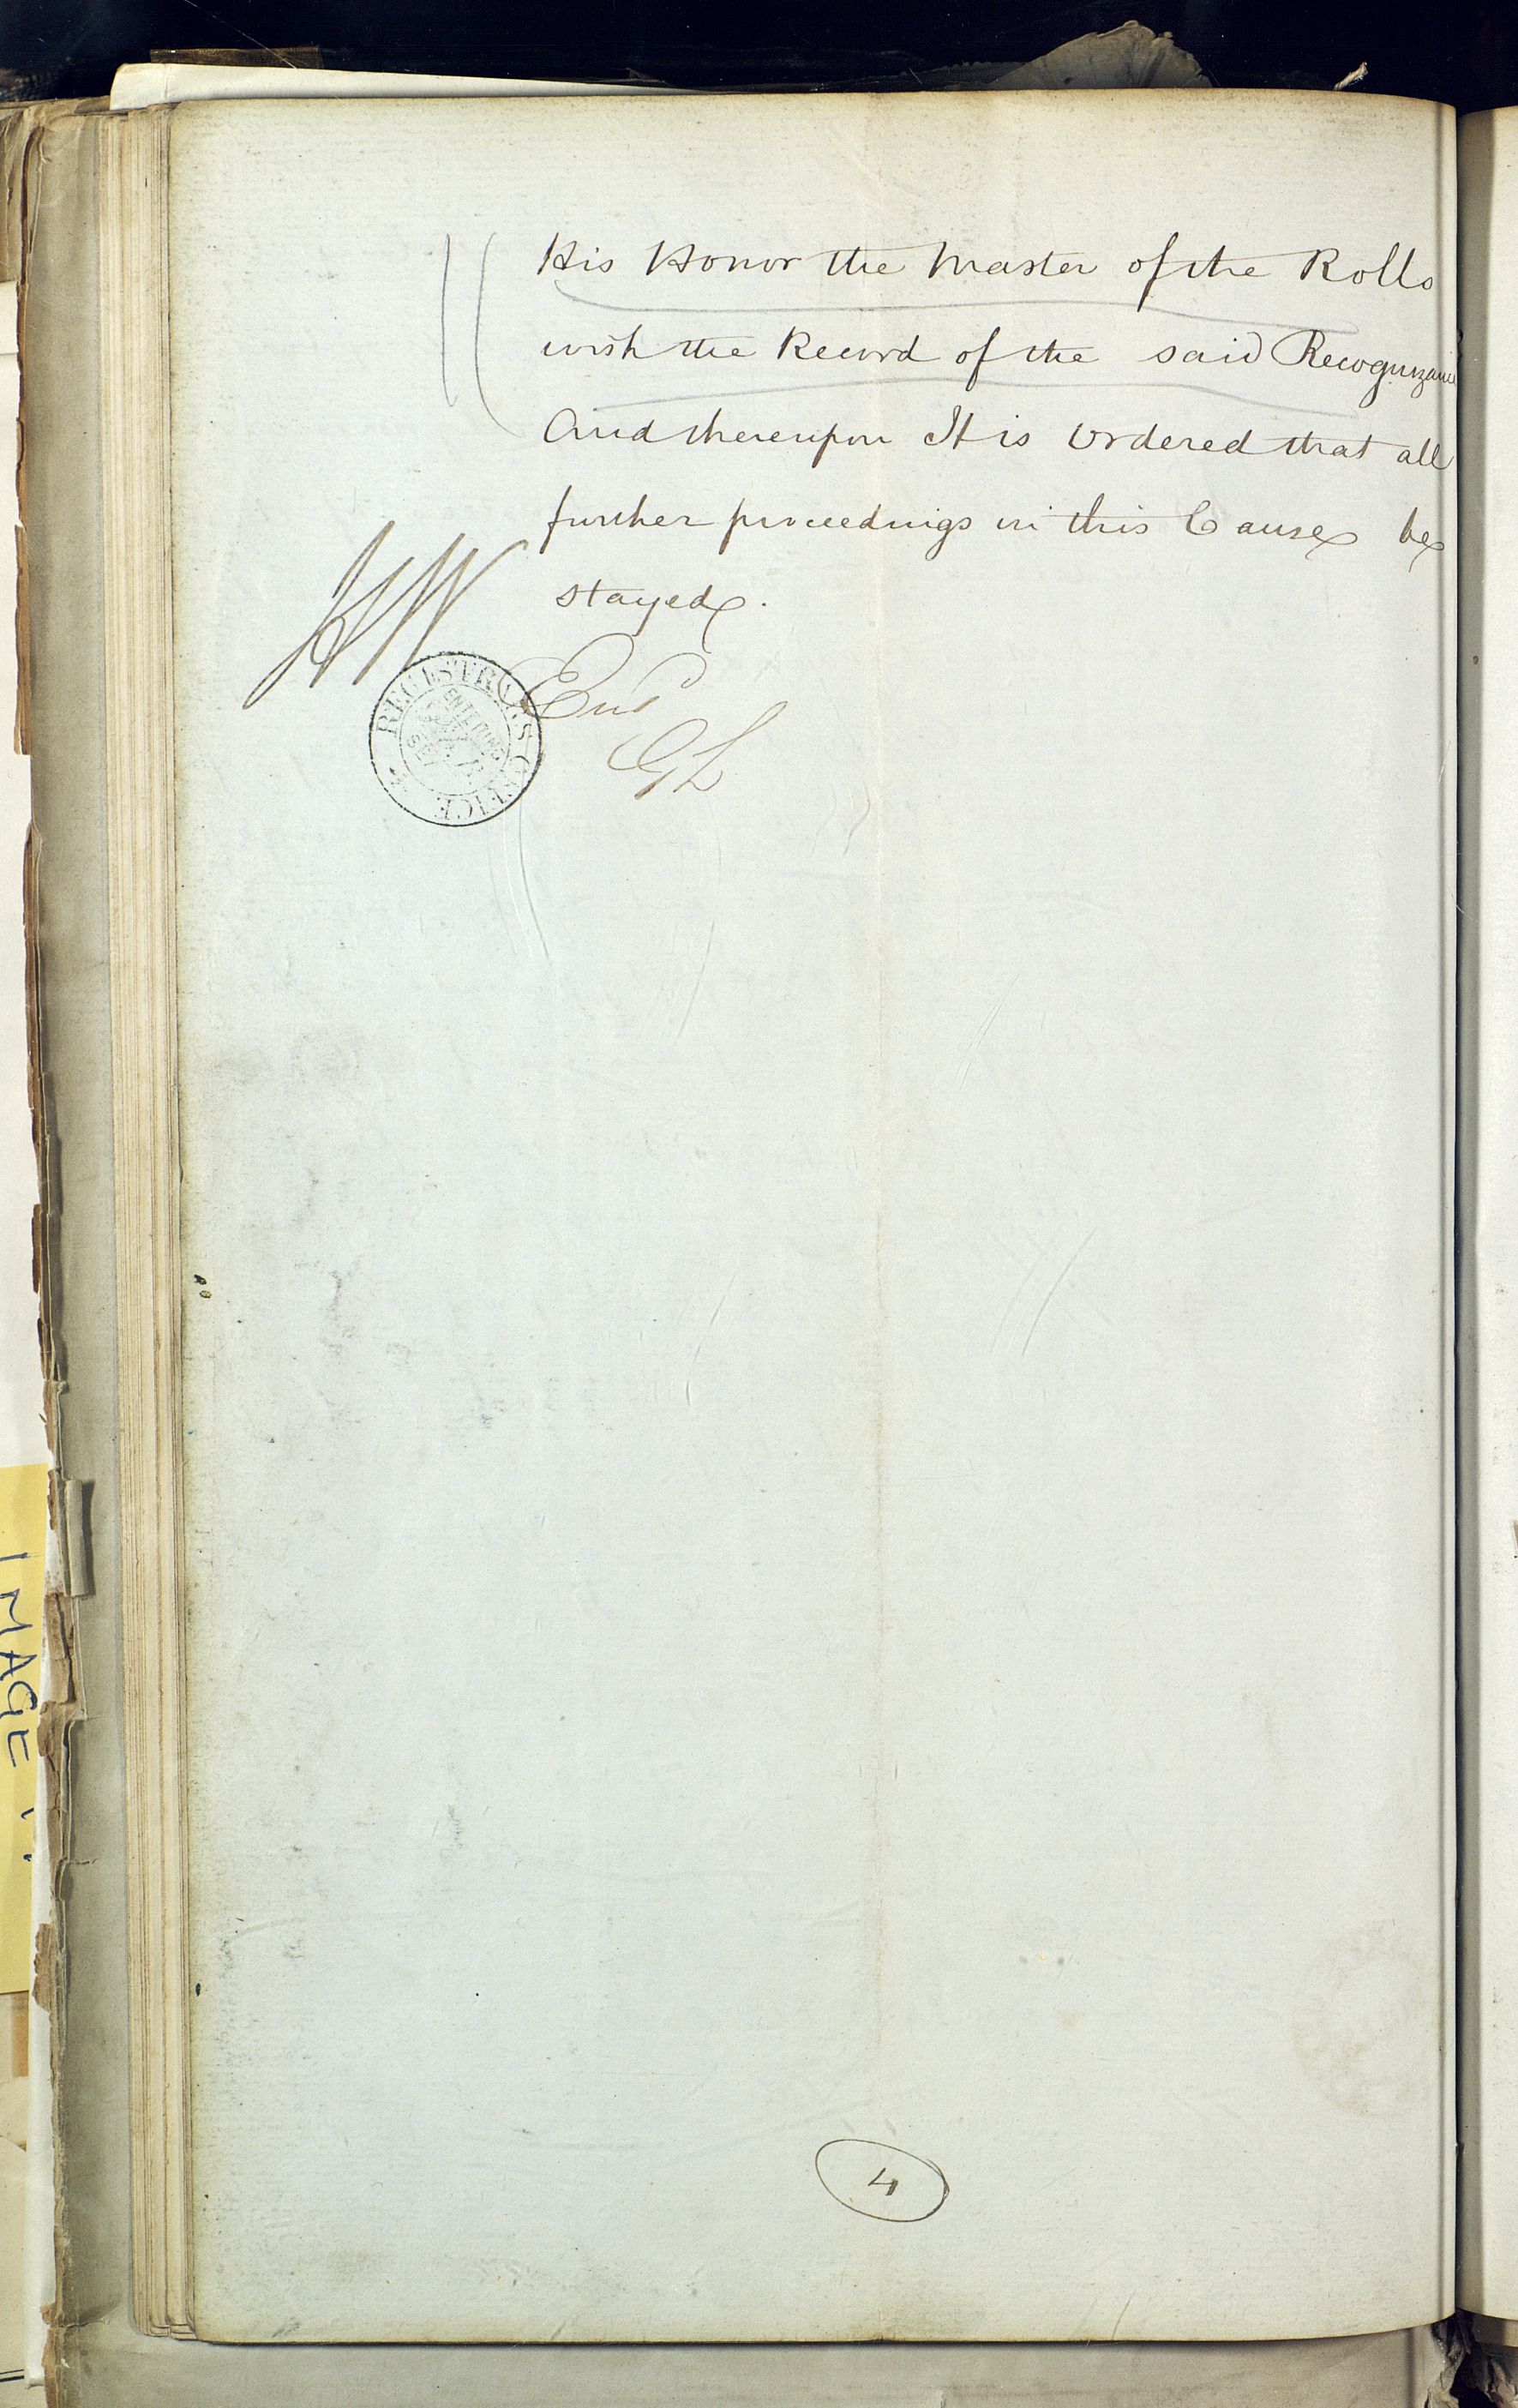 His Honor the Master of the Rolls
with the Record of the said Recognizance
And thereupon It is Ordered that all
further proceedings in this Cause be
stayed.
Entd
GL
REGISTRARS OFFICE
4
IMAGE